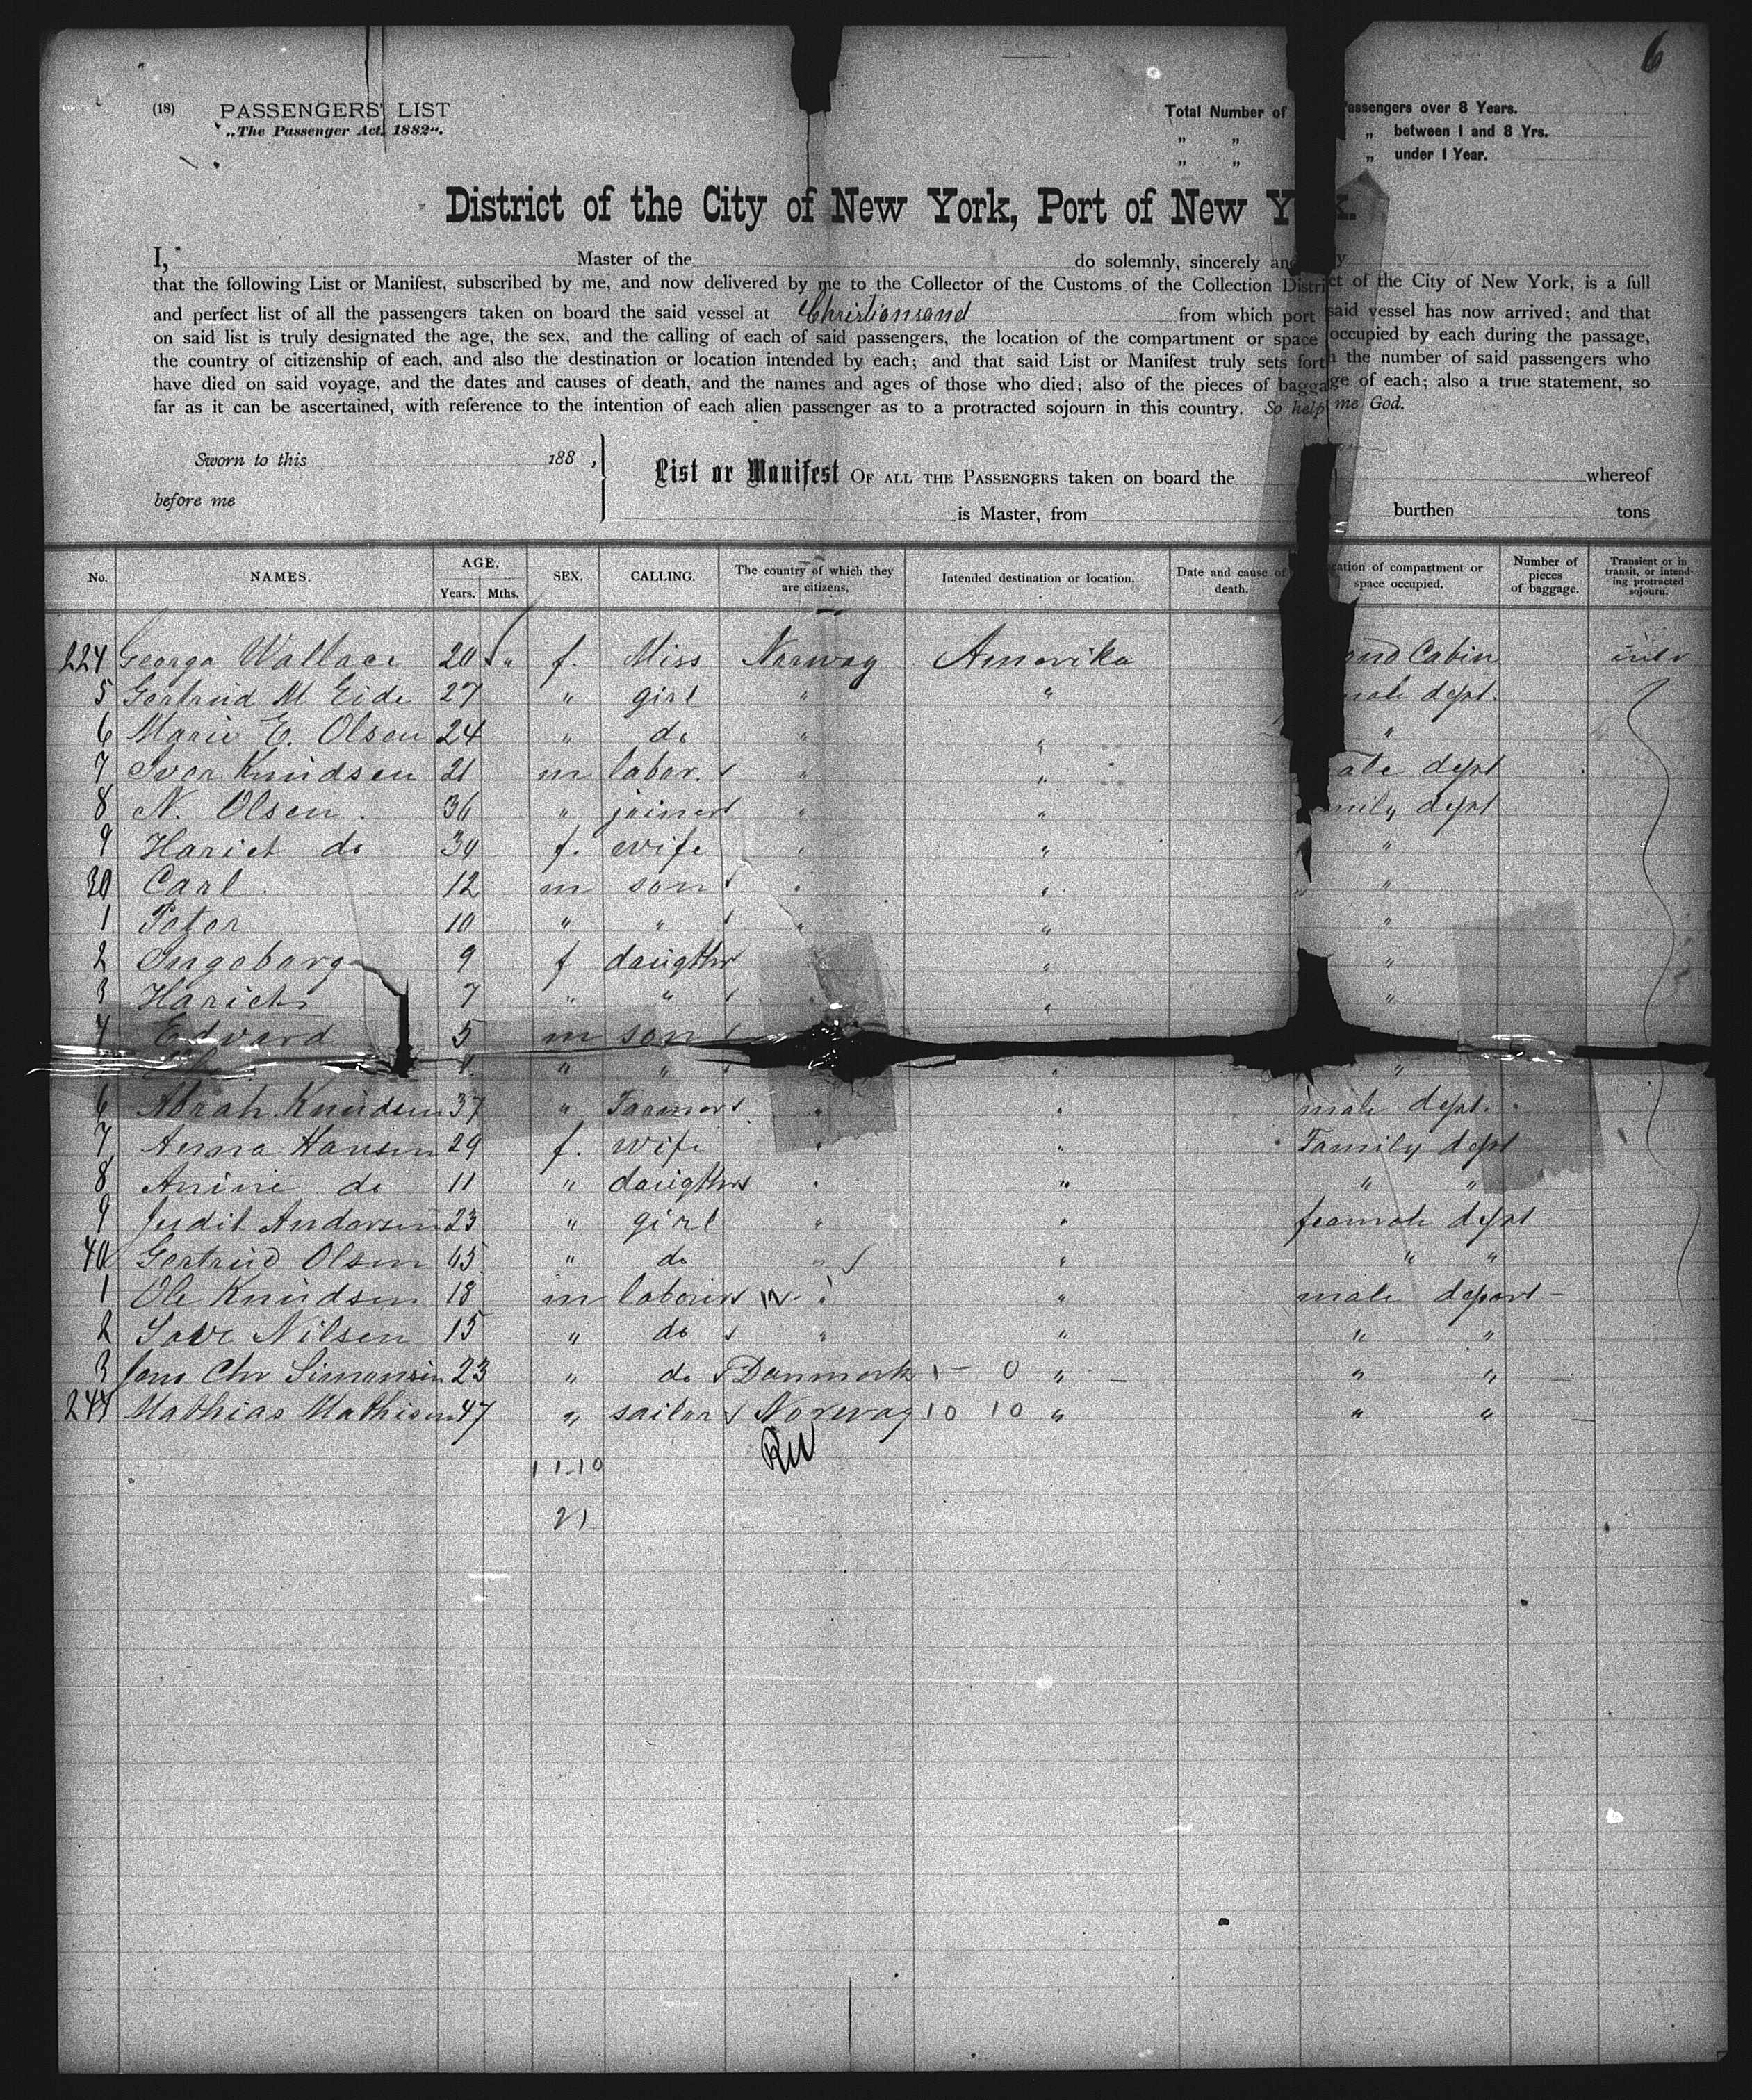 6
(18) PASSENGERS' LIST Total Number of Passengers over 8 Years.
„The Passenger Act, 1882“. „ „ „ between 1 and 8 Yrs.
„ „ „ under 1 Year.
District of the City of New York, Port of New Y k.
I, Master of the do solemnly, sincerely and y
that the following List or Manifest, subscribed by me, and now delivered by me to the Collector of the Customs of the Collection District of the City of New York, is a full
and perfect list of all the passengers taken on board the said vessel at Christiansand from which port said vessel has now arrived; and that
on said list is truly designated the age, the sex, and the calling of each of said passengers, the location of the compartment or space occupied by each during the passage,
the country of citizenship of each, and also the destination or location intended by each; and that said List or Manifest truly sets forth the number of said passengers who
have died on said voyage, and the dates and causes of death, and the names and ages of those who died; also of the pieces of baggage of each; also a true statement, so
far as it can be ascertained, with reference to the intention of each alien passenger as to a protracted sojourn in this country. So help me God.
Sworn to this 188 ,
before me
List or Manifest OF ALL THE PASSENGERS taken on board the whereof
is Master, from burthen tons
No. NAMES. AGE. Years. Mths. SEX. CALLING. The country of which they are citizens. Intended destination or location. Date and cause of death. cation of compartment or space occupied. Number of pieces of baggage. Transient or in transit, or intending protracted sojourn.
224 George Wallace 20 " f. Miss Norway Amerika and Cabin
5 Gertrud M Eide 27 " girl " " male dept.
6 Marie E. Olsen 24 " do " " "
7 Iver Knudsen 21 m labor. " " ale dept
8 N. Olsen 36 " joiner " " mily dept
9 Hariet do f. wife " " "
30 Carl 12 m son " " "
1 Peter 10 " " " " "
2 Ingeborg 9 f daugther " "
3 Hariet 7 " " " " "
4 Edvard 5 m son
" " " "
6 Abrah. Knudsen 37 " Farmer " " male dept.
7 Anna Hansen 29 f. wife " " Family dept
8 Anine do 11 " daugther " " " "
9 Judit Andersen 23 " girl " " feamale dept
40 Gertrud Olsen " do " " " "
1 Ole Knudsen 18 m laborer " " male depart
2 Nilsen 15 " do " " " "
3 Jens Chr Simonsen 23 " do Danmark 1 - 0 " " "
244 Mathias Mathisen 47 " sailor Norway 10 10 " " "
11-10
21